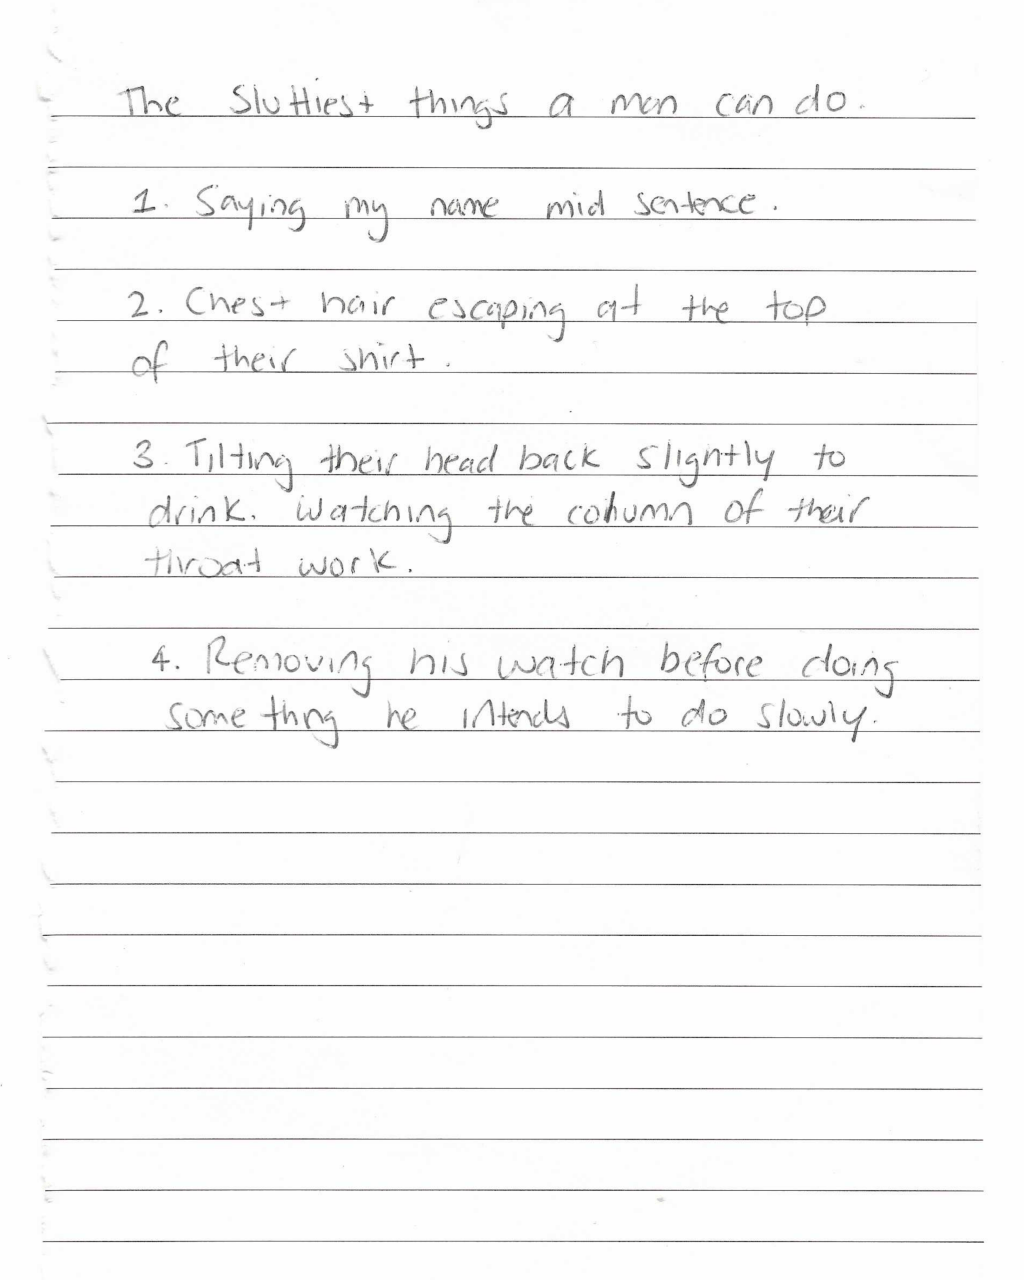 The Sluttiest things a man can do.
1. Saying my name mid sentence.
2. Chest hair escaping at the top
of their shirt.
3. Tilting their head back slightly to
drink. Watching the column of their
throat work.
4. Removing his watch before doing
something he intends to do slowly.